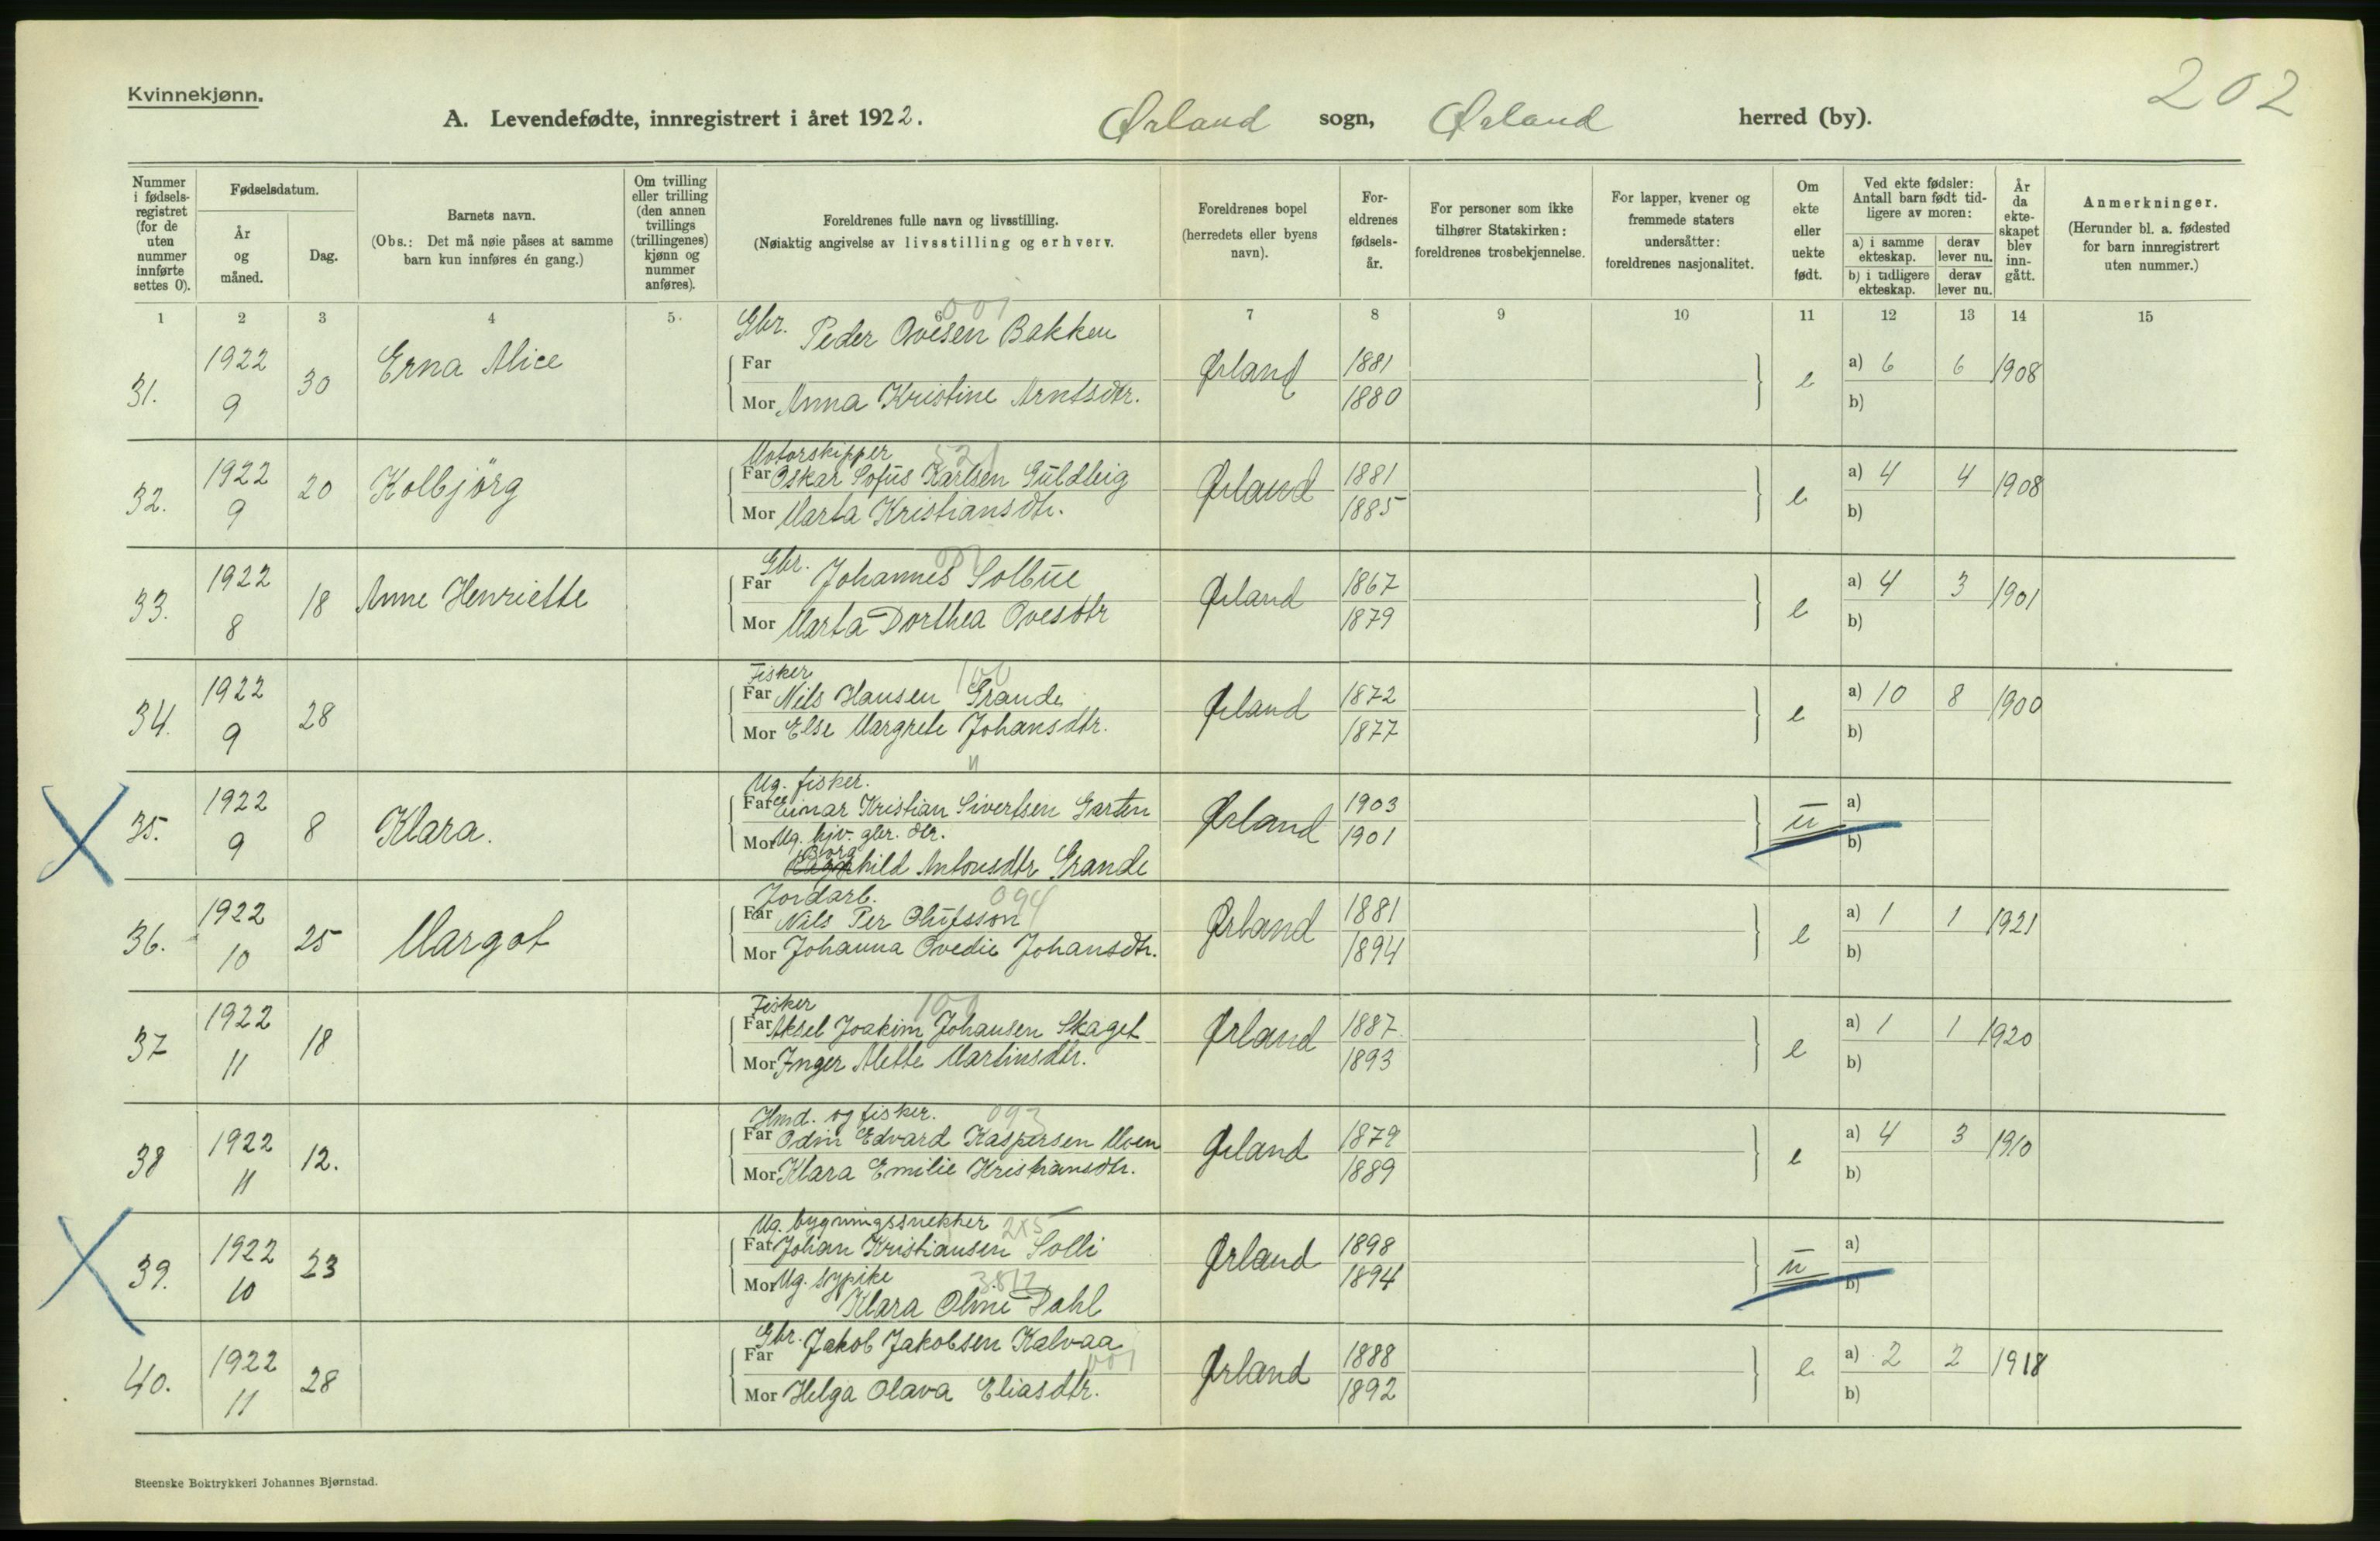 202
Kvinnekjønn.
A. Levendefødte, innregistrert i året 1922. Ørland sogn, Ørland herred (by).
Nummer i fødsels-registret (for de uten nummer innførte settes 0).
Fødselsdatum.
År og måned.
Dag.
Barnets navn.
(Obs.: Det må nøie påses at samme barn kun innføres én gang.)
Om tvilling eller trilling (den annen tvillings (trillingenes) kjønn og nummer anføres).
Foreldrenes fulle navn og livsstilling.
(Nøiaktig angivelse av livsstilling og erhverv.
Foreldrenes bopel (herredets eller byens navn).
For-eldrenes fødsels-år.
For personer som ikke tilhører Statskirken: foreldrenes trosbekjennelse.
For lapper, kvener og fremmede staters undersåtter: foreldrenes nasjonalitet.
Om ekte eller uekte født.
Ved ekte fødsler: Antall barn født tid-ligere av moren:
a) i samme ekteskap.
derav lever nu.
b) i tidligere ekteskap.
derav lever nu.
År da ekte-skapet blev inn-gått.
Anmerkninger.
(Herunder bl. a. fødested for barn innregistrert uten nummer.)
1 2 3 4 5. 6 7 8 9 10 11 12 13 14 15
Gbr. 001
31. 1922 9 30 Erna Alice Far Peder Ovesen Bakken Ørland 1881 e a) 6 6 1908
Mor Anna Kristine Arntsdtr. 1880 b)
Motorskipper 521
32. 1922 9 20 Kolbjörg Far Oskar Sofus Karlsen Guldteig Ørland 1881 e a) 4 4 1908
Mor Marta Kristiansdtr. 1885 b)
Gbr.
33. 1922 8 18 Anne Henriette Far Johannes Solbue Ørland 1867 e a) 4 3 1901
Mor Marta Dorthea Ovesdtr 1879 b)
Fisker 100
34. 1922 9 28 Far Nils Hansen Grande Ørland 1872 e a) 10 8 1900
Mor Else Margrete Johansdtr. 1877 b)
Ug. fisker. "
35. 1922 9 8 Klara. Far Einar Kristian Sivertsen Garten Ørland 1903 u a)
Mor Ug. hjv. gbr. dtr. 1901 b)
Borghild Antonsdtr Grande
Jordarb. 094
36. 1922 10 25 Margot Far Nils Per Olufsson Ørland 1881 e a) 1 1 1921
Mor Johanna Ovedie Johansdtr. 1894 b)
Fisker 100
37 1922 11 18 Far Aksel Joakim Johansen Skaget Ørland 1887 e a) 1 1 1920
Mor Inger Mette Martinsdtr. 1893 b)
Hmd. og fisker. 093
38 1922 11 12. Far Odin Edvard Kaspersen Moen Ørland 1879 e a) 4 3 1910
Mor Klara Emilie Kristiansdtr. 1889 b)
Ug. bygningssnekker 2x5
39. 1922 10 23 Far Johan Kristiansen Solli Ørland 1898 u a)
Mor Ug. sypike 1894 b)
Klara Oline Dahl
Gbr. Jakob Jakobsen Kalvaa
40. 1922 11 28 Far 001 Ørland 1888 e a) 2 2 1918
Mor Helga Olava Eliasdtr. 1892 b)
Steenske Boktrykkeri Johannes Bjørnstad.